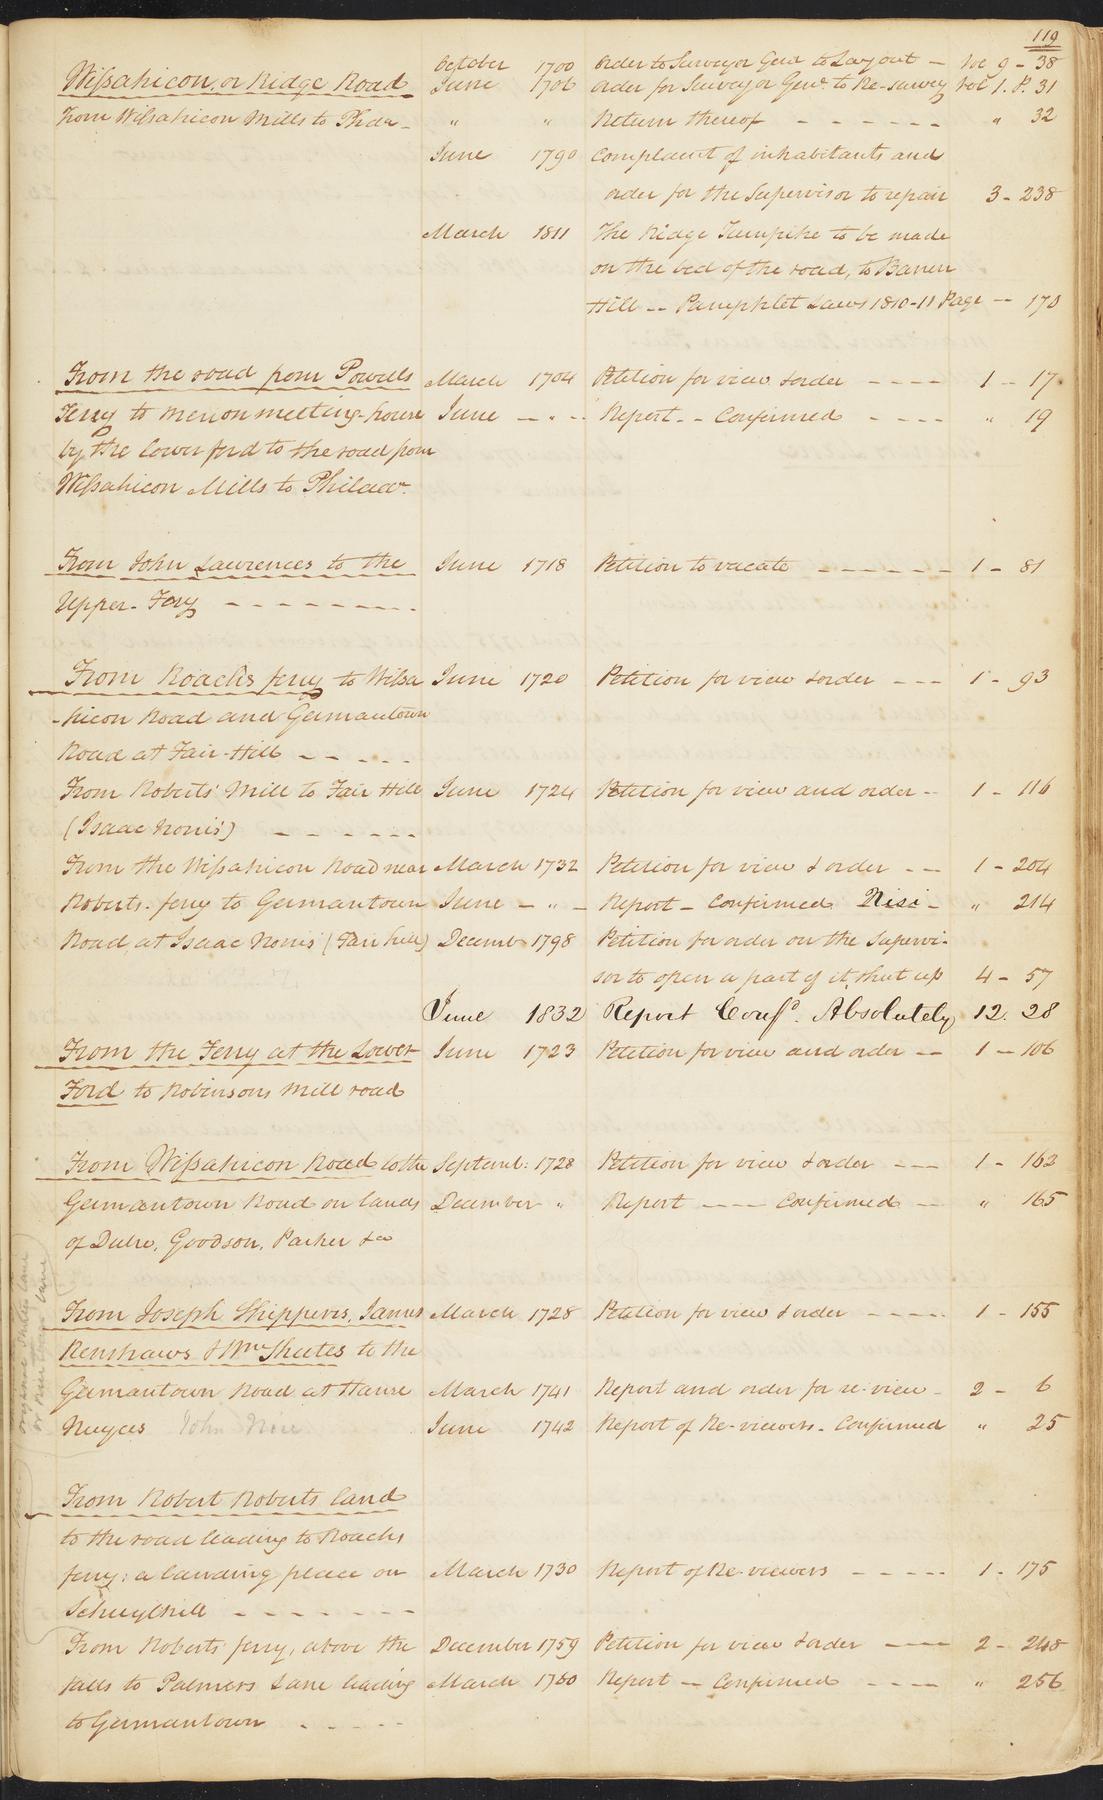 119
October 1700 order to Surveyor Genl to Lay out — Vol 9 - 38
Wissahicon, or Ridge Road June 1706 order for Surveyor Genl. to Re-survey Vol 1. P. 31
From Wissahicon Mills to Phda - " " Return thereof - - - - - - - " 32
June 1790 Complaint of inhabitants and
order for the Supervisor to repair 3 - 238
March 1811 The Ridge Turnpike to be made
on the bed of the road, to Barren
Hill -- Pamphlet Laws 1810-11 Page -- 170
From the road from Powells March 1704 Petition for view & order - - - - 1 - 17
Ferry to Merion meeting-house June — " - - Report - - Confirmed - - - - " 19
by the lower ford to the road from
Wissahicon Mills to Philada.
From John Lawrences to the June 1718 Petition to vacate - - - - - - - 1 - 81
Upper - Ferry - - - - - - - - -
From Roachs ferry to Wissa June 1720 Petition for view & order - - - 1 - 93
-hicon Road and Germantown
Road at Fair-Hill - - - - -
From Roberts' Mill to Fair Hill June 1724 Petition for view and order - - 1 - 116
(Isaac Norris') - - - - - -
From the Wissahicon Road near March 1732 Petition for view & order - - 1 - 204
Roberts' ferry to Germantown June — " — Report - Confirmed Nisi - " 214
Road, at Isaac Norris' (Fair hill) Decemb 1798 Petition for order on the Supervi-
sor to open a part of it, shut up 4 - 57
June 1832 Report Confd. Absolutely 12. 28
From the Ferry at the Lower June 1723 Petition for view and order -- 1 - 106
Ford to Robinsons Mill road
From Wissahicon Road to the Septemb: 1728 Petition for view & order --- 1 - 163
Germantown Road on lands December " Report ---- Confirmed -- " 165
of Dubre, Goodson, Parker &c
From Joseph Shippens, James March 1728 Petition for view & order - - - - - 1 - 155
Renshaws & Wm Shutes to the
Germantown Road at Hanse March 1741 Report and order for re-view - 2 - 6
Neuyces John June 1742 Report of Re-viewers - Confirmed " 25
From Robert Roberts land
to the road leading to Roachs
ferry: a landing place on March 1730 Report of Re-viewers - - - - - 1 - 175
Schuylkill - - - - - - -
From Roberts' ferry, above the December 1759 Petition for view & order ---- 2 - 248
falls to Palmers Lane leading March 1760 Report -- Confirmed - - - - " 256
to Germantown - - - - -